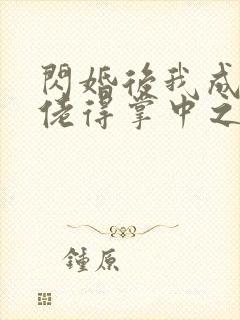 閃婚後我成
佬得掌中之
鍾原